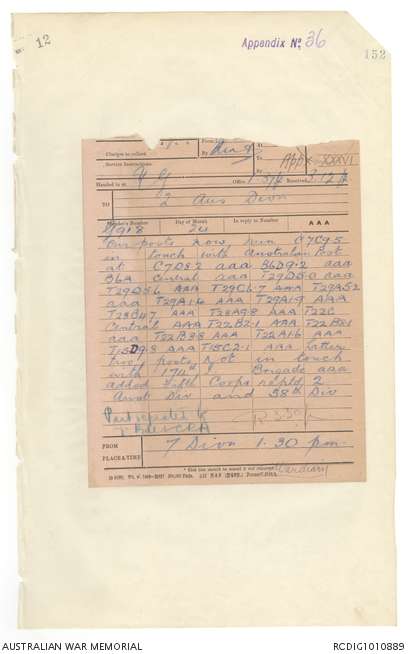 12
Appendix No. 36
152
Charges to collect
By
App XXXVI
Service Instructions
Handed in at
Office
Received
TO
2 Aus Divn
Sender's Number
Day of Month
In reply to Number
AAA
G918
24
Our posts now run C7C9.5
in touch with Australian Post
at C7D8.2 aaa B6D9.2 aaa
B6A Central aaa T29D0.0 aaa
T29D5.6 AAA T29C6.7 AAA T29A5.2
aaa T29A1.4 AAA T29A1.9 AAA
T28B4.7 AAA T28A9.8 AAA T22C
Central AAA T22B2.1 AAA T22B8.1
aaa T22B3.8 AAA T22A1.6 AAA
T15D9.8 AAA T15C2.1 AAA latter
two posts not in touch
with 174th Brigade aaa
added Fifth Corps reptd 2
Aust Div and 58th Div
FROM
PLACE & TIME
7 Divn 1.30 pm
War diary
AUSTRALIAN WAR MEMORIAL
RCDIG1010889